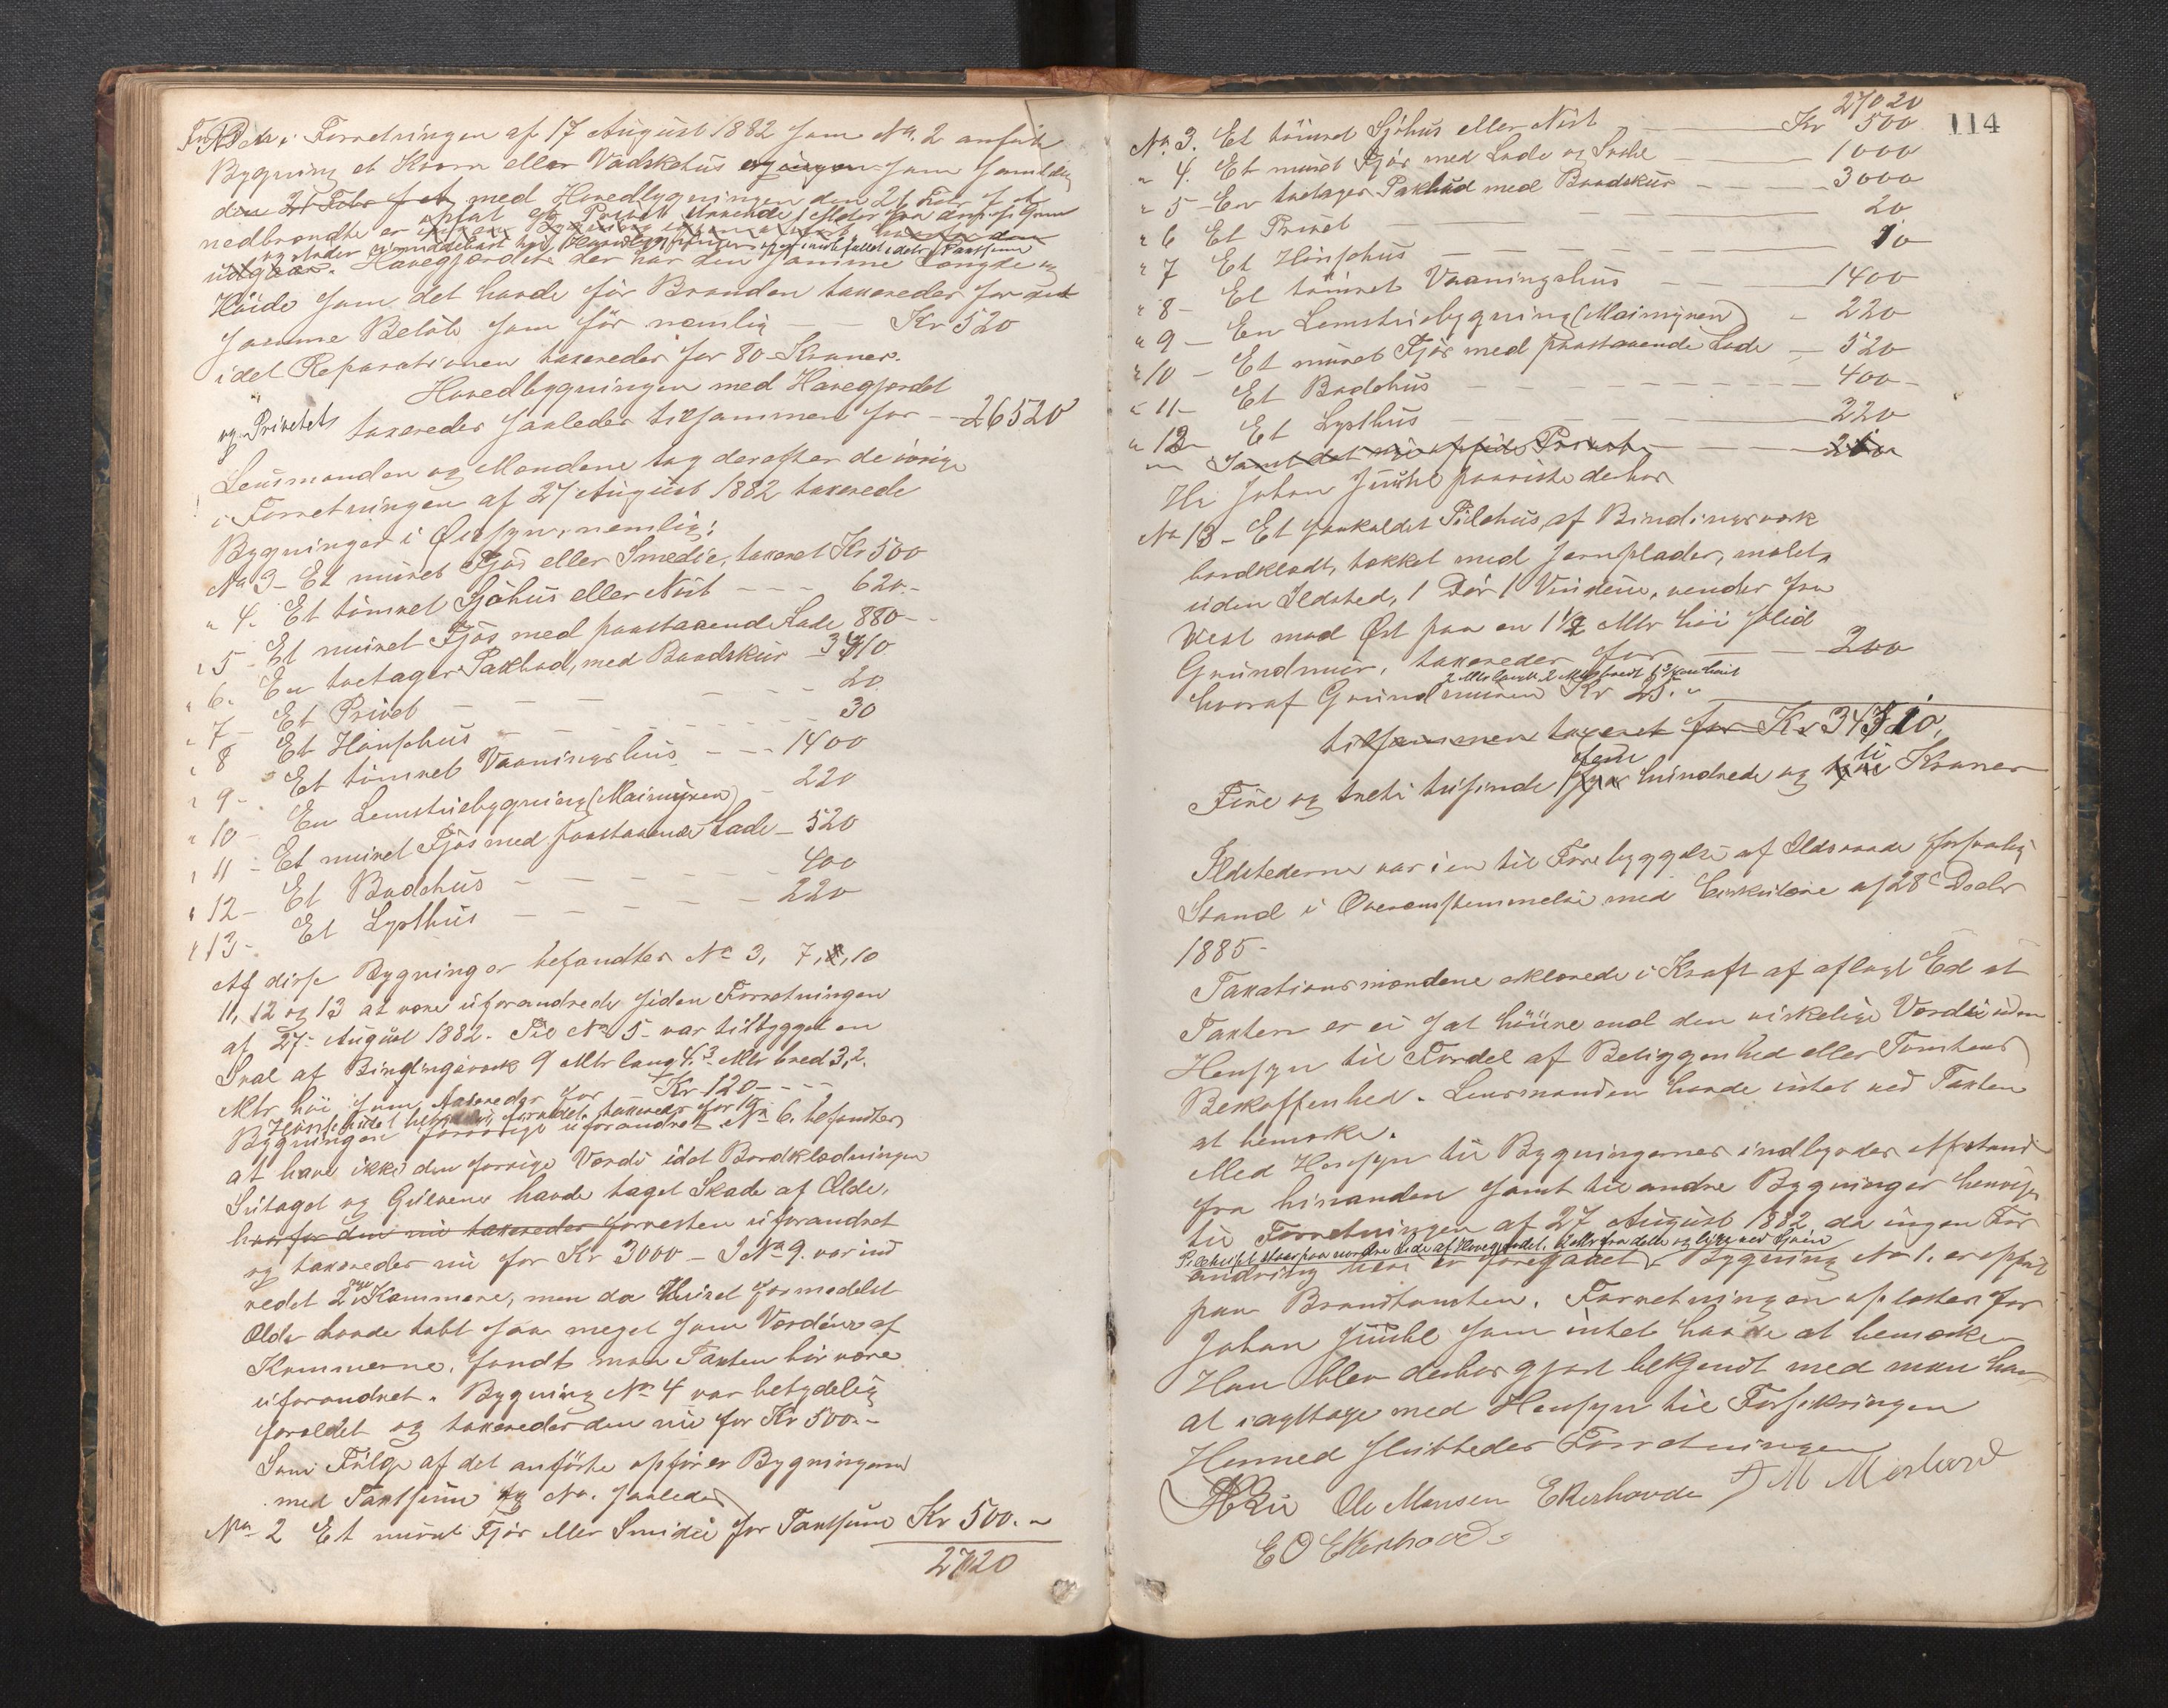 Den i Forretningen af 17 August 1882 som No. 2 anførte
Bygning et Kvern eller Vadskehus og ingen som samtidig
den 21 Febr f A med Hovedbygningen den 21 Febr f A
nedbrændte er opført et Privet
og støder umiddelbart
udgaar. Havegjærdet der har den samme Længde og
Høide som det havde før Branden taxeredes for det
samme Beløb som før nemlig — — Kr 520
idet Reparationen taxeredes for 80 Kroner.
Hovedbygningen med Havegjerdet
og Privetet taxeredes saaledes tilsammen for — 26520
Lensmanden og Mændene tog derefter de øvrige
i Forretningen af 27 August 1882 taxerede
Bygninger i Øiesyn, nemlig:
No 3 - Et muret Fjøs eller Smedie, taxeret Kr 500
" 4. Et tømret Sjøhus eller Nøst - - - 620.-
" 5 - Et muret Fjøs med paastaaende Lade 880 -
" 6. En toetages Pakbod, med Baadskur - 3410
" 7 - Et Privet - - - 20
" 8 Et Hønsehus - - - 30
" 9 - Et tømret Vaaningshus - - - 1400
" 10 - En Lemstuebygning (Maimyren) - 220
" 11 - Et muret Fjøs med paastaaende Lade - 520
" 12 - Et Badehus - - - 400
" 13 - Et Lysthus - - - 220
Af disse Bygninger befandtes No 3, 7, 8, 10
11, 12 og 13 at være uforandrede siden Forretningen
af 27 August 1882. Til No 5 var tilbygget en
Sval af Bindingsværk 9 Mtr lang 4,3 Mtr bred 3,2
Mtr høi som taxeredes for Kr 120 - - - -
Hønsehuset forældet, taxeredes for 10
Bygningen forøvrigt uforandret. No 6. befandtes
at have ikke den forrige Værdi idet Bordklædningen
Sutaget og Gulvene havde taget Skade af Ælde,
hvorfor den nu taxeredes forresten uforandret
og taxeredes nu for Kr 3000 - I No 9. var ind
redet 2 nye Kammere, men da Huset formedelst
Ælde havde tabt saa meget som Værdien af
Kammerne, fandt man Taxten bør være
uforandret. Bygning No 4 var betydelig
forældet og taxeredes den nu for Kr 500.-
Som Følge af det anførte opføres Bygningerne
med Taxtsum og No. saaledes
No 2 Et muret Fjøs eller Smidie for Taxtsum Kr 500. -
27020
114
27020
No 3. Et tømret Sjøhus eller Nøst — Kr 500
" 4. Et muret Fjøs med Lade og Svale — 1000
" 5 - En toetages Pakbod med Baadskur — 3000
" 6 Et Privet — 20
" 7 Et Hønsehus — 10
" 8 - Et tømret Vaaningshus — 1400
" 9 - En Lemstuebygning (Maimyren) - 220
" 10 - Et muret Fjøs med paastaaende Lade — 520
" 11 - Et Badehus — 400 -
" 12 - Et Lysthus — 220
Samt det Privet — 20
Hr Johan Juuhl paaviste derhos
No 13 - Et saakaldet Pilehus, af Bindingsværk
bordklædt, tækket med Jernplader, malet,
uden Ildsted, 1 Dør 1 Vindue, vender fra
West mod Øst paa en 1 1/2 Mtr høi solid
Grundmur, taxeredes for — 200
hvoraf Grundmuren Kr 25. "
tilsammen taxeret for Kr 34510,
Fire og treti tusinde fem hundrede og ti Kroner
Ildstederne var i en til Forebyggelse af Ildsvaade forsvarlig
Stand i Overensstemmelse med Cirkulære af 28 Decbr
1885 -
Taxationsmændene erklærede i Kraft af aflagt Ed at
Taxten er ei sat høiere end den virkelige Værdi uden
Hensyn til Fordel af Beliggenhed eller Tomtens
Beskaffenhed. Lensmanden havde intet ved Taxten
at bemærke.
Med Hensyn til Bygningernes indbyrdes Afstand
fra hinanden samt til andre Bygninger henvises
til Forretningen af 27 August 1882, da ingen For
Pilehuset staar paa nordre Side af Havegjærdet, 2 Mtr fra dette og lige ved Sjøen
andring heri er foregaaet. Bygning No 1. er opført
paa Brandtomten. Forretningen oplæstes for
Johan Juuhl som intet havde at bemærke
Han blev derhos gjort bekjendt med man har
at iagttage med Hensyn til Forsikringen
Hermed sluttedes Forretningen
Ole Monsen Ekerhovde
E O Ekerhovde